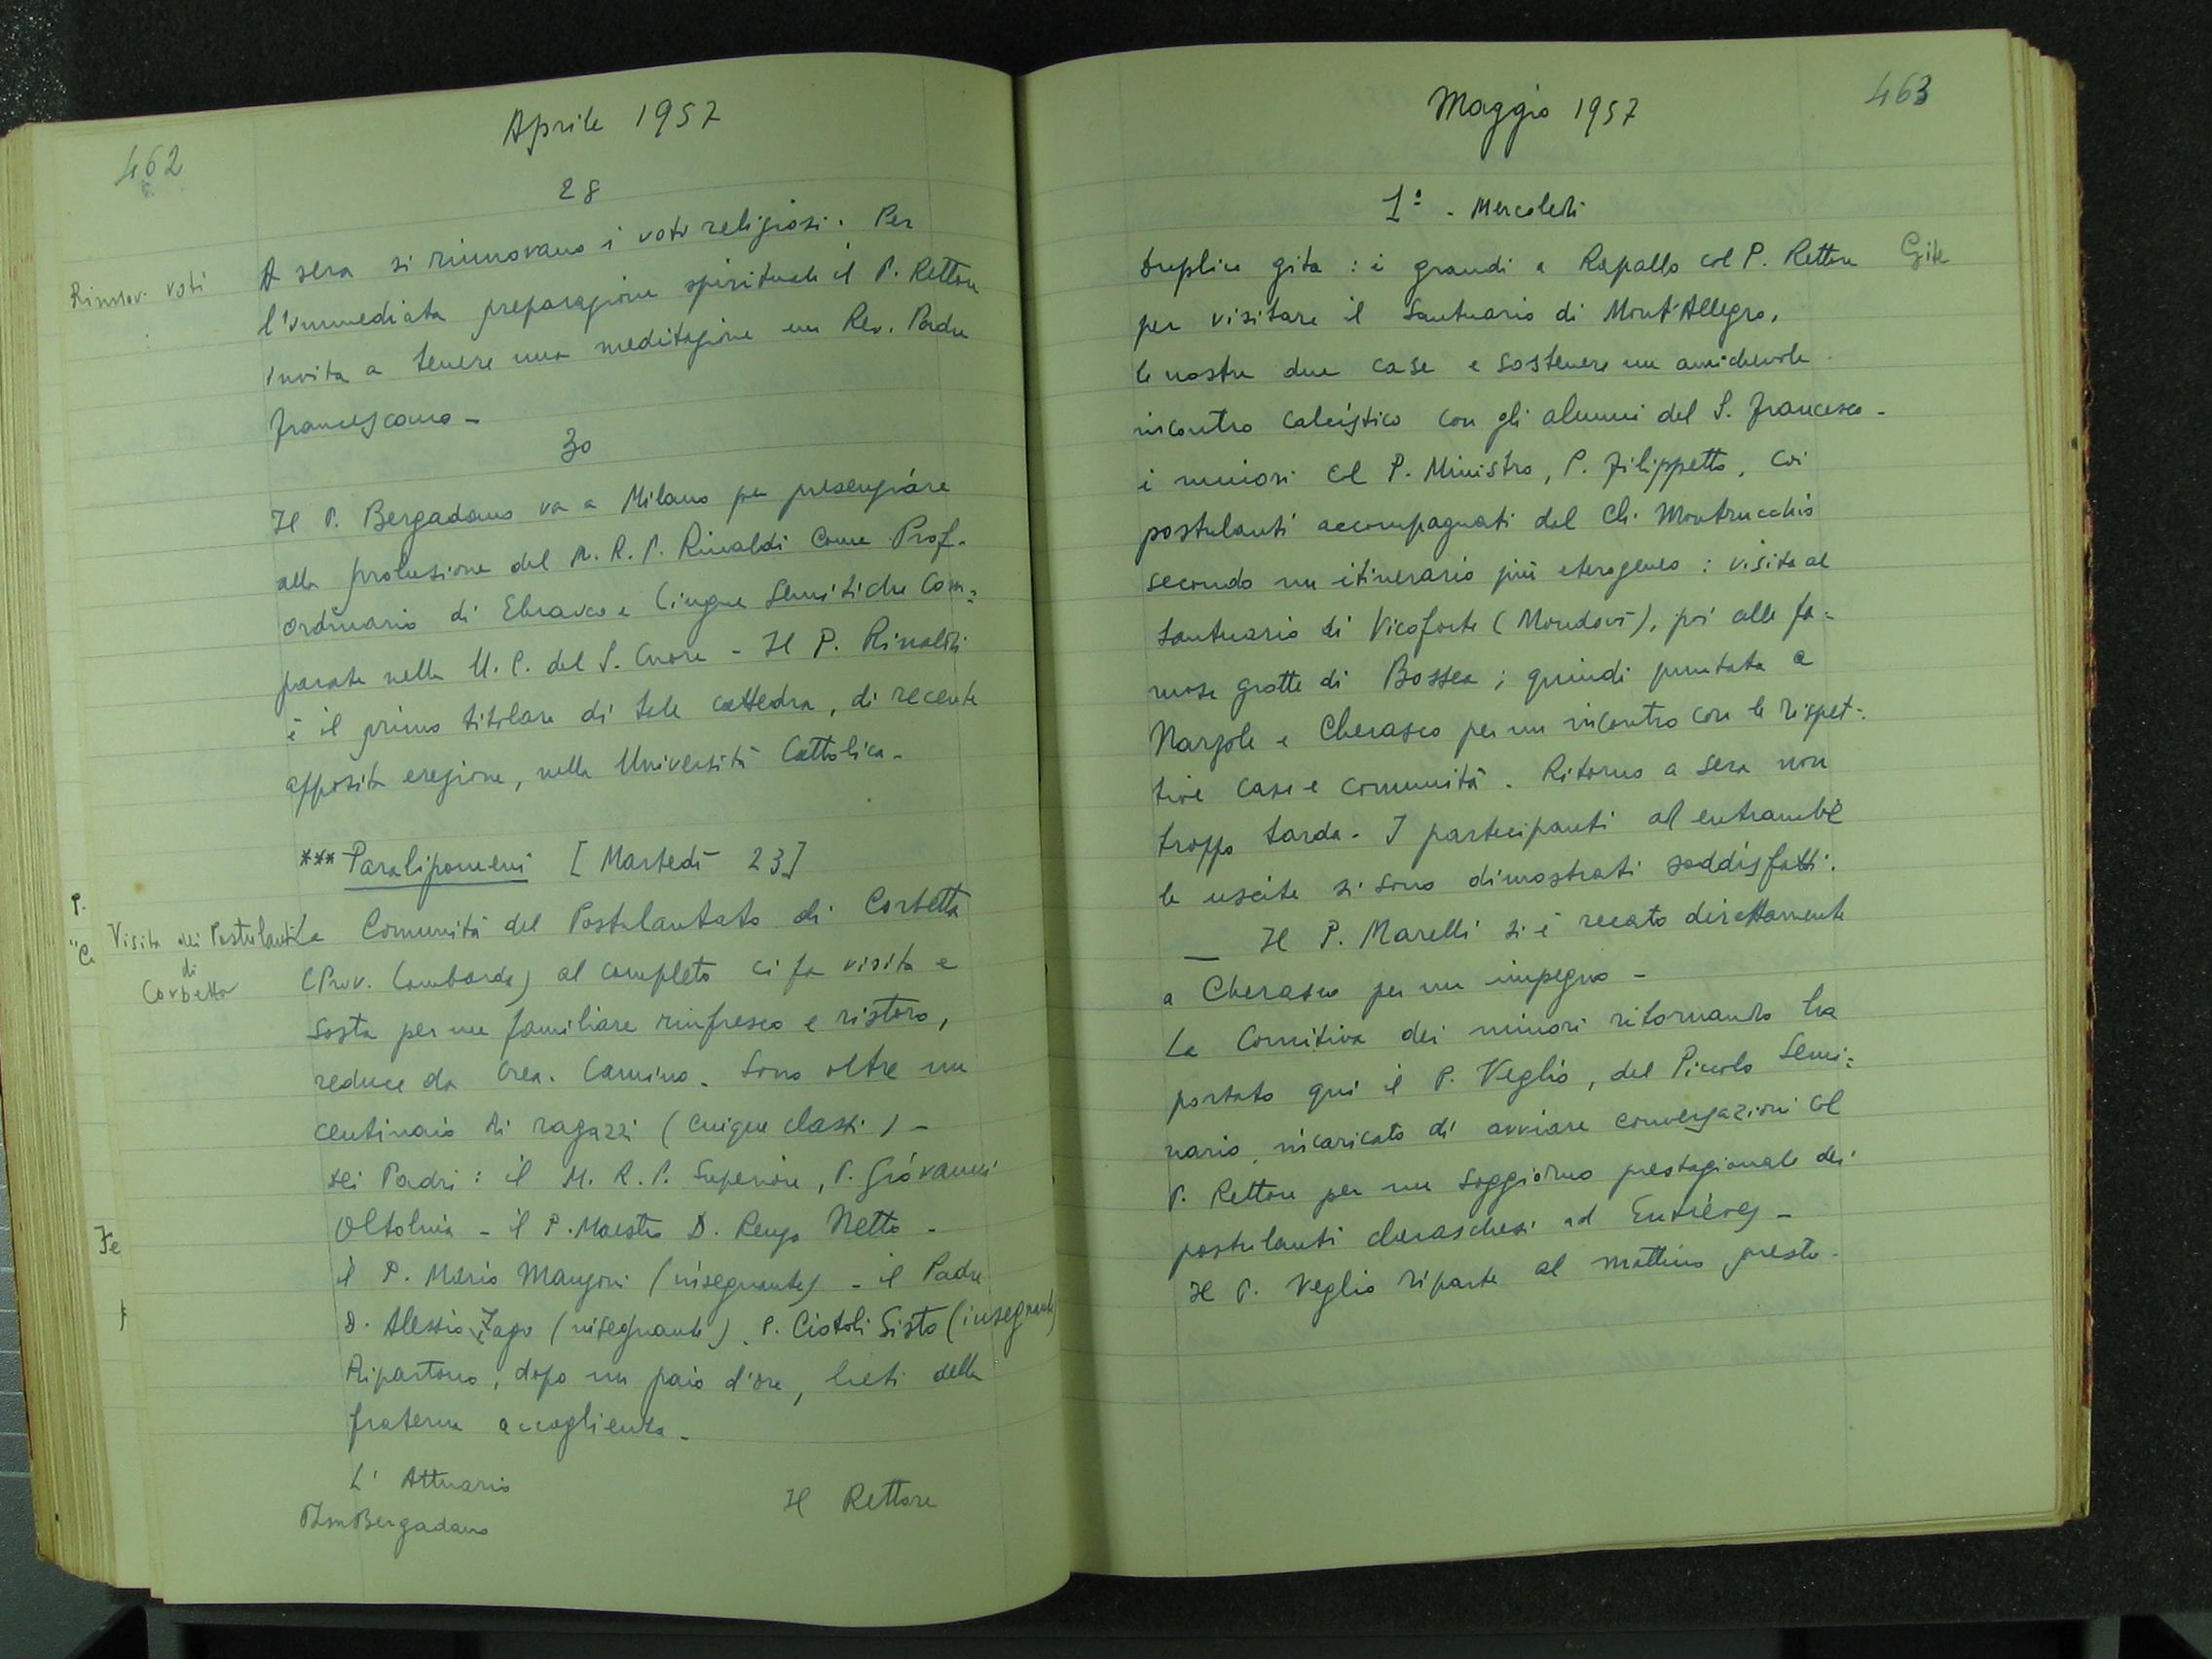 462
Aprile 1957
28
Rinnov. voti
A sera si rinnovano i voti religiosi. Per
l'immediata preparazione spirituale il P. Rettore
invita a tenere una meditazione un Rev. Padre
francescano -
30
Il P. Bergadano va a Milano per presenziare
alla prolusione del M. R. P. Rinaldi come Prof.
ordinario di Ebraico e Lingue Semitiche Com=
parate nella U. C. del S. Cuore - Il P. Rinaldi
è il primo titolare di tale cattedra, di recente
apposita erezione, nella Università Cattolica -
*** Paralipomeni [Martedì 23]
Visita dei Postulanti
di
Corbetta
La Comunità del Postulantato di Corbetta
(Prov. Lombarda) al completo ci fa visita e
sosta per un familiare rinfresco e ristoro,
reduce da Crea. Camino. Sono oltre un
centinaio di ragazzi (cinque classi) -
sei Padri: il M. R. P. Superiore, P. Giovanni
Oltolina - il P. Maestro D. Renzo Netto -
il P. Mario Manzoni (insegnante) - il Padre
D. Alessio Zago (insegnante). P. Ciotoli Sisto (insegnante)
Ripartono, dopo un paio d'ore, lieti della
fraterna accoglienza -
L' Attuario
Il Rettore
Bergadano
463
Maggio 1957
1° - Mercoledì
Gite
Duplice gita: i grandi a Rapallo col P. Rettore
per visitare il Santuario di Mont'Allegro,
le nostre due case e sostenere un amichevole
incontro calcistico con gli alunni del S. Francesco -
i minori col P. Ministro, P. Filippetto, coi
postulanti accompagnati dal Ch. Montrucchio
secondo un itinerario più eterogeneo: visita al
Santuario di Vicoforte (Mondovì), poi alle fa=
mose grotte di Bossea; quindi puntata a
Narzole e Cherasco per un incontro con le rispet=
tive case e comunità. Ritorno a sera non
troppo tarda. I partecipanti ad entrambe
le uscite si sono dimostrati soddisfatti.
_ Il P. Marelli si è recato direttamente
a Cherasco per un impegno -
La Comitiva dei minori ritornando ha
portato qui il P. Veglio, del Piccolo Semi=
nario, incaricato di avviare conversazioni col
P. Rettore per un soggiorno prestagionale dei
postulanti cheraschesi ad Entrèves -
Il P. Veglio riparte al mattino presto -